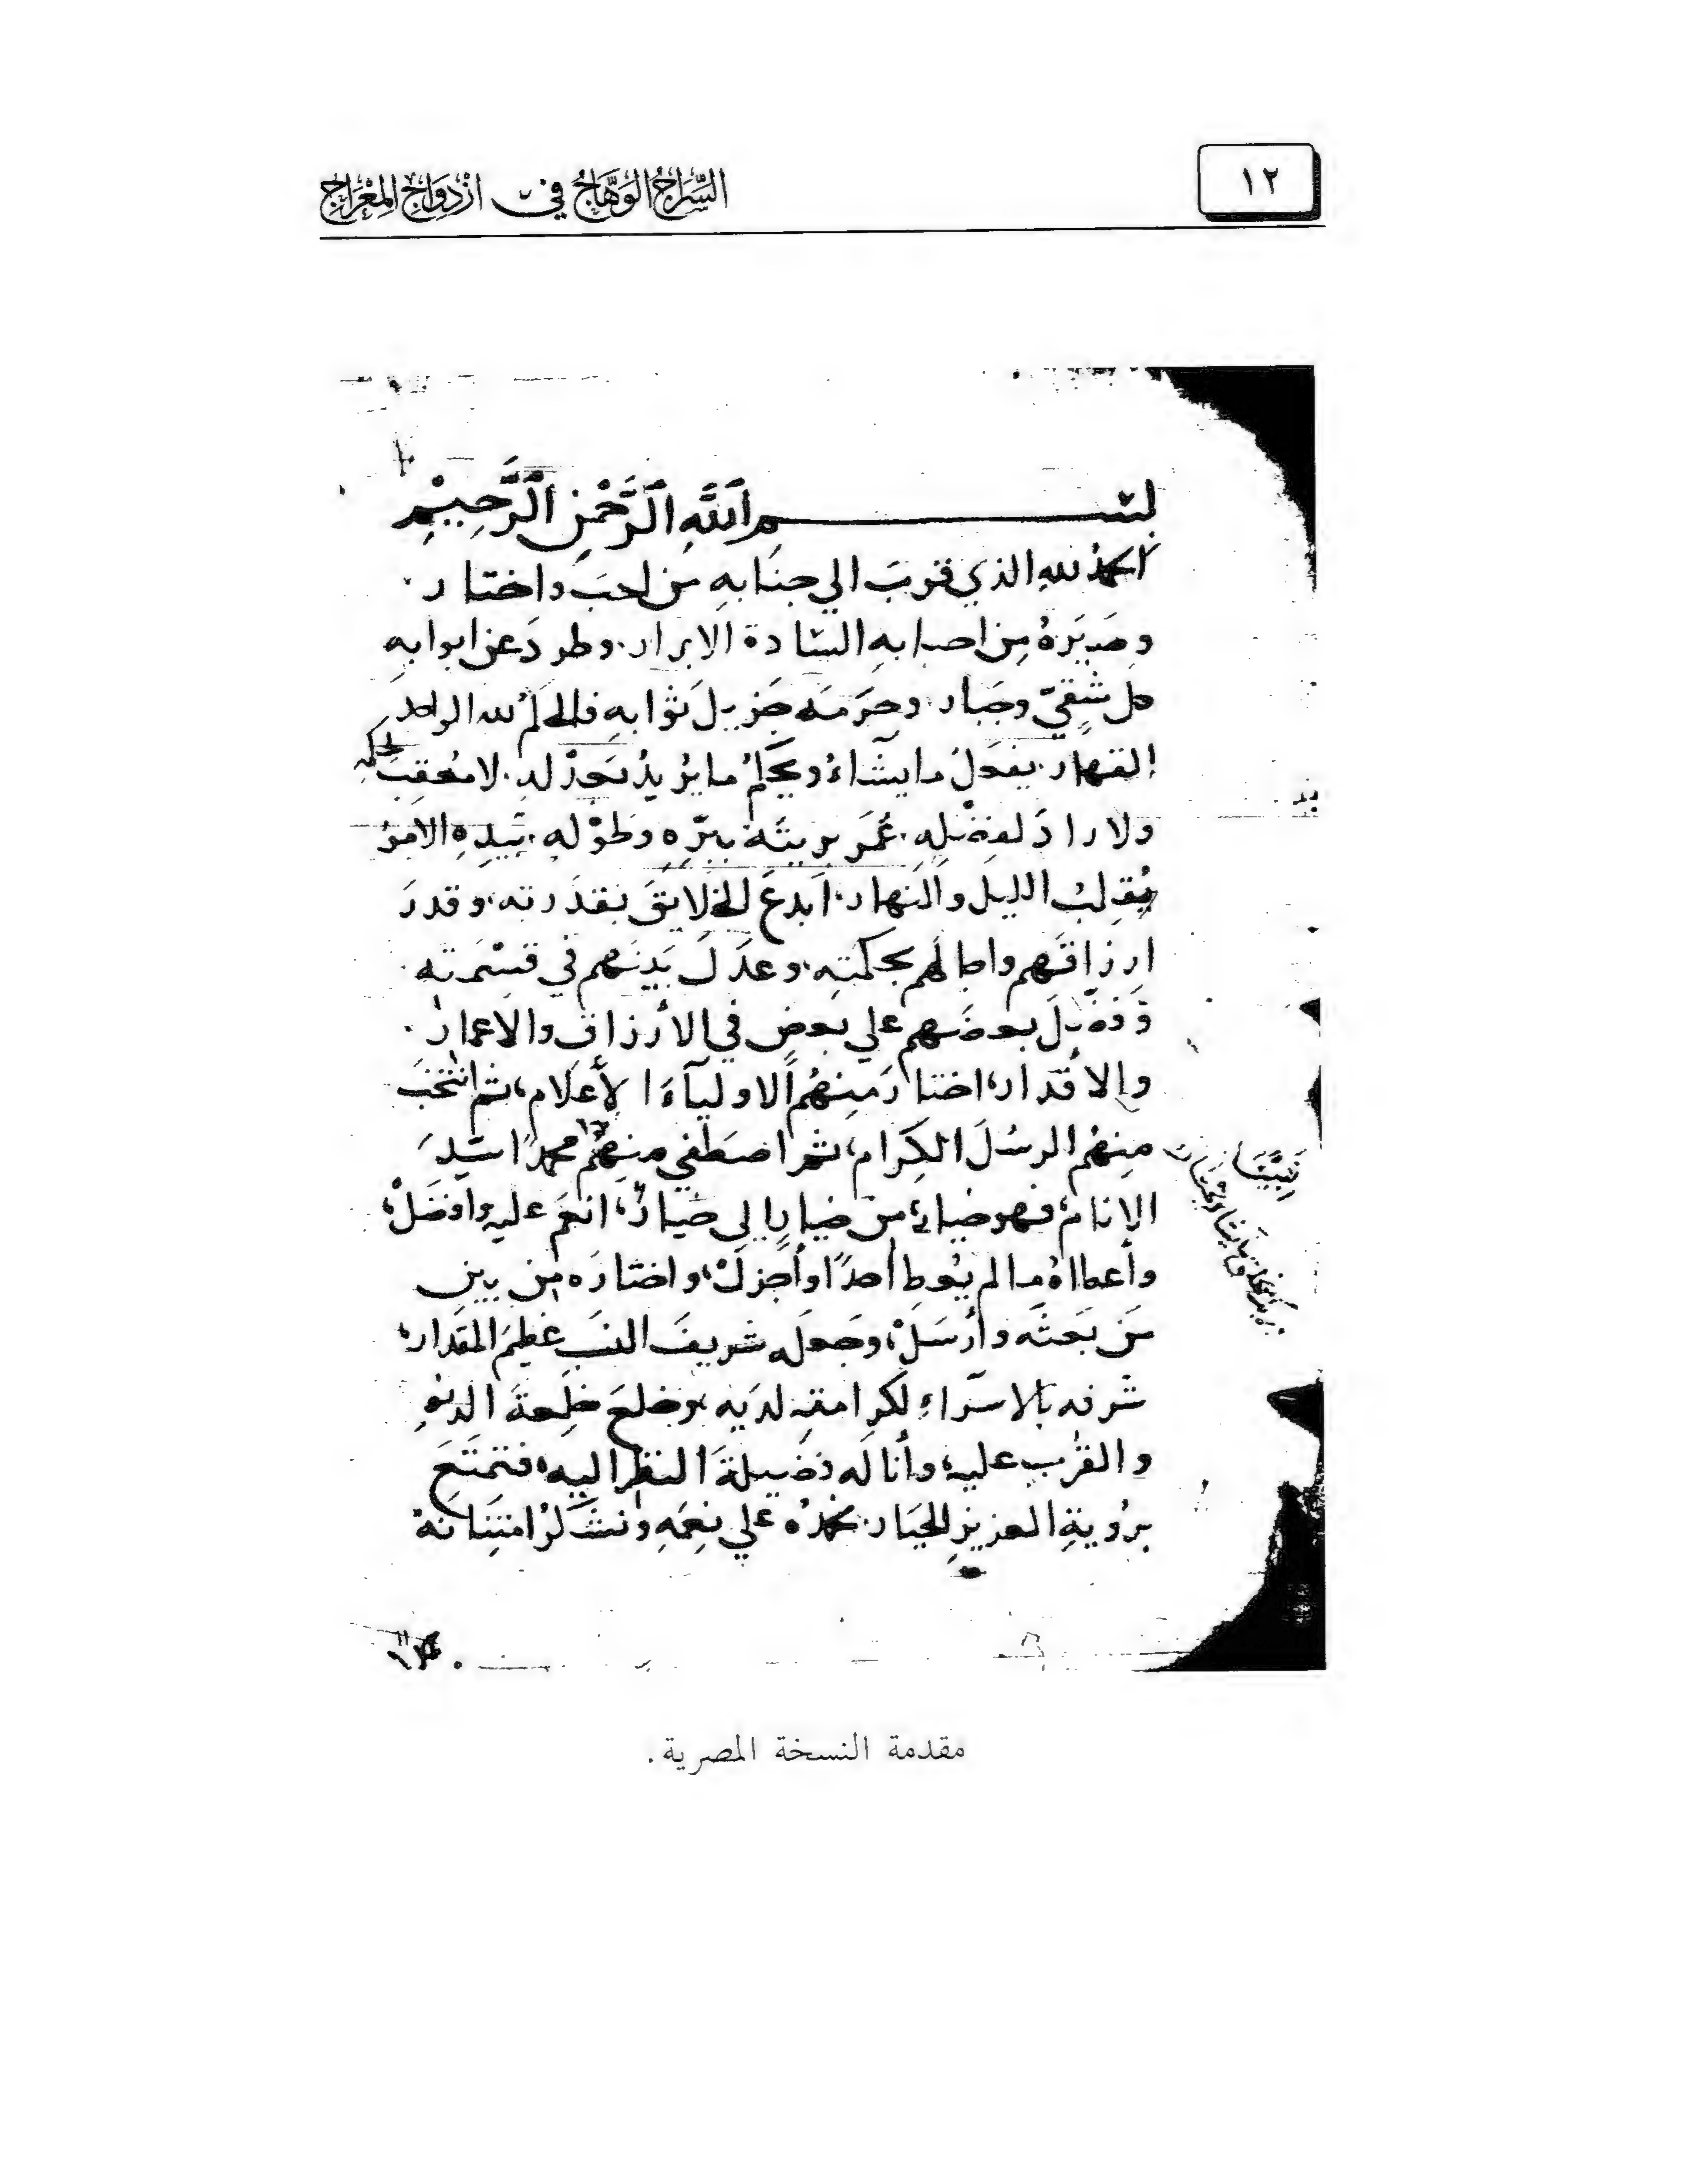 ١٢
السِّرَاجُ الوَهَّاجُ في ازْدِوَاجِ المِعْرَاجِ
بسم اللَّهِ الرَّحْمٰنِ الرَّحِيْمِ
الحمدُ للهِ الذي قربَ الي جنَابهِ من احبَ واختار.
وصَيَرَهُ مِن احبابهِ السَّادة الابرار. وطردَ عن ابوابهِ
كل شَقِيّ وجَبار. وحَرَمَه جَزيلَ ثوَابهِ فالحكمُ لله الواحد
القهار. يفعَلُ مايشَاءُ ويحكمُ مايُريدُ لا مُعَقِبَ لحكمه
ولا رادَ لفضْلِهِ. غمَر بريتَه ببِرِّه وطَوْله. بيَدِهِ الامورُ
يُقَلِبُ الليل والنهار. ابدعَ الخلايقَ بقدرته. وقدرَ
ارزاقَهم واجالهم بحكمتِهِ. وعدَلَ بَينَهم في قسْمَتِه.
وفضَّلَ بعضَهم علي بعضٍ في الأرزاق والاعمار.
والاقدار، اختارَ منهُم الاولياءَ الأعلام، ثم انتخَبَ
منهُم الرسُلَ الكِرام، ثم اصطَفي منهُم محمدًا سَيِدَ
نَبِيَّنَا
الانام، فهو خيار، من خيار الى خيار، انعَمَ عليه وافضَلْ،
وأعطاهُ مالم يُعطِ أحدًا وأجزلْ، واختارَه من بين
مَن بَعثَه وأرْسَلْ، وجعله شريفَ النسَب عظيمَ المقدار،
شرفه بالاسرَاءِ لكرامته لديه، وخلعَ خلعةَ الدنوِ
والقرب عليه، وأناله فضيلةَ النظر اليه، فتمتَعَ
برُويةِ العزيزِ الجبار. نحمدُه علي نِعَمِهِ ونشكُرُ امتِنَانَه
مقدمة النسخة المصرية.